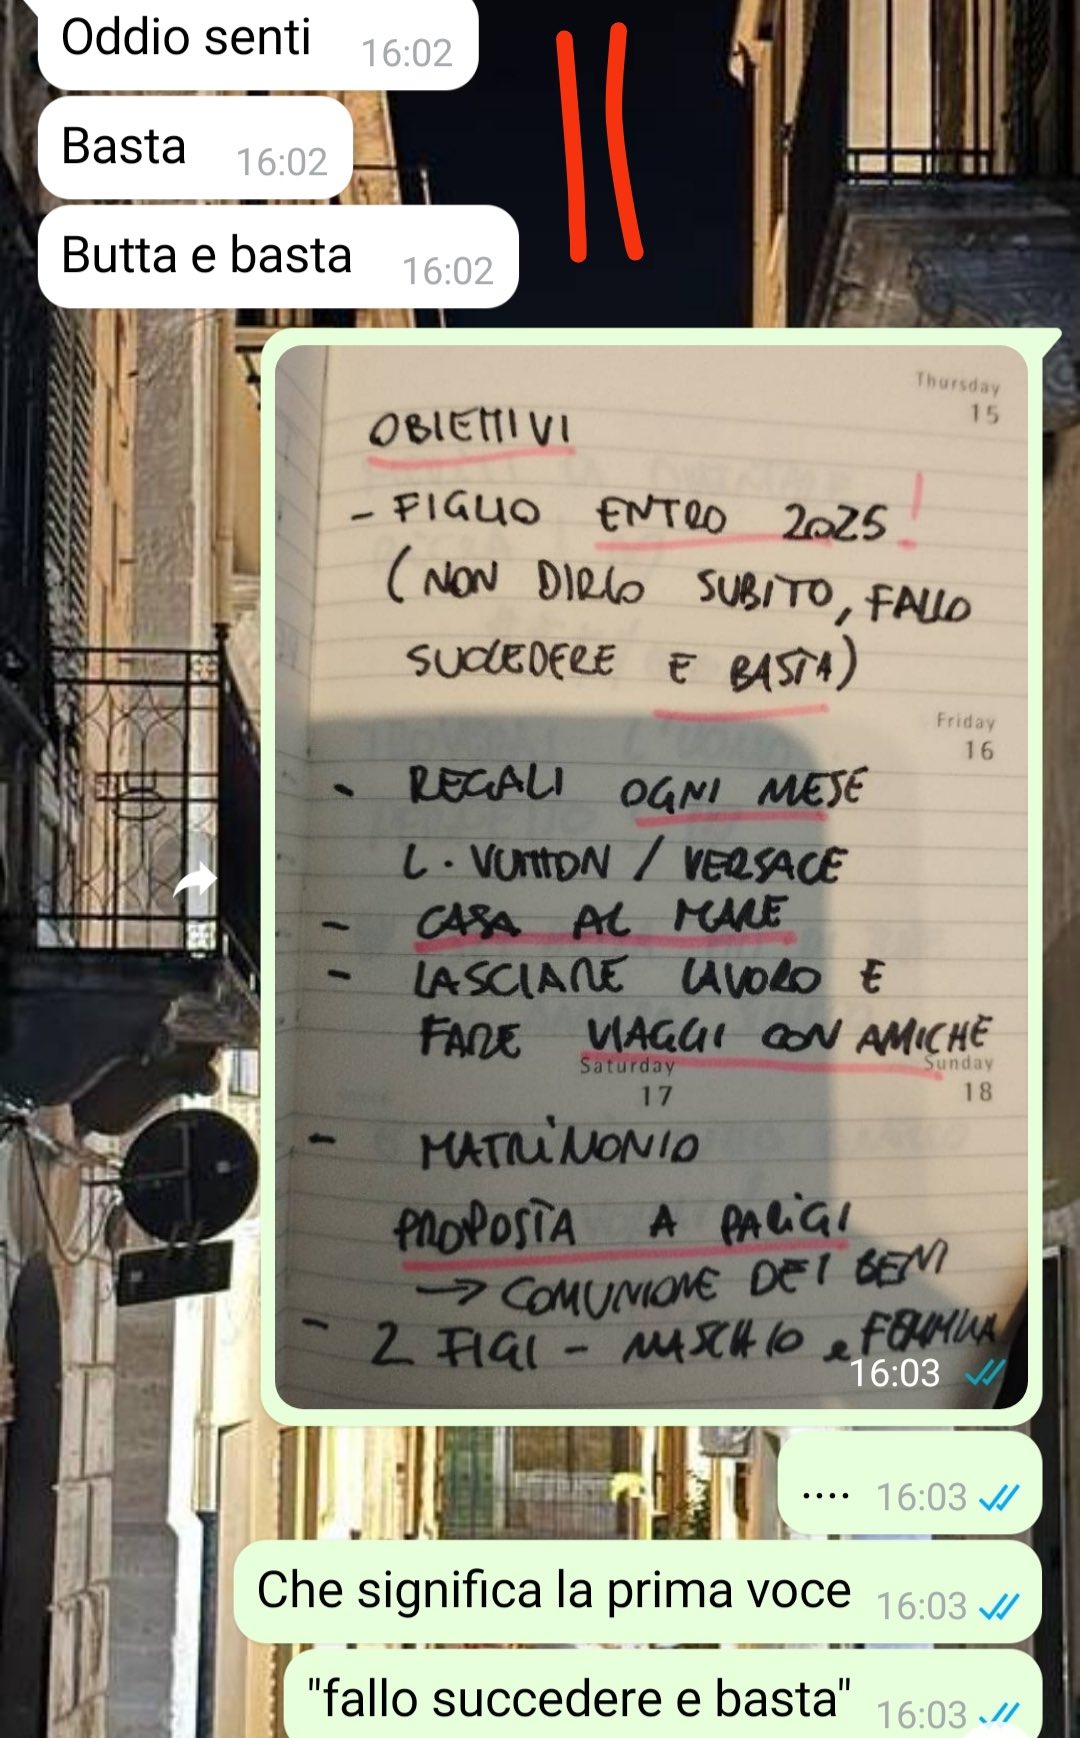 Oddio senti 16:02
Basta 16:02
Butta e basta 16:02
Thursday
15
OBIETTIVI
- FIGLIO ENTRO 2025!
(NON DIRLO SUBITO, FALLO
SUCCEDERE E BASTA)
Friday
16
- REGALI OGNI MESE
L. VUITTON / VERSACE
- CASA AL MARE
- LASCIARE LAVORO E
FARE VIAGGI CON AMICHE
Saturday Sunday
17 18
- MATRIMONIO
PROPOSTA A PARIGI
→ COMUNIONE DEI BENI
- 2 FIGI - MASCHIO e FEMMINA
16:03
.... 16:03
Che significa la prima voce 16:03
"fallo succedere e basta" 16:03